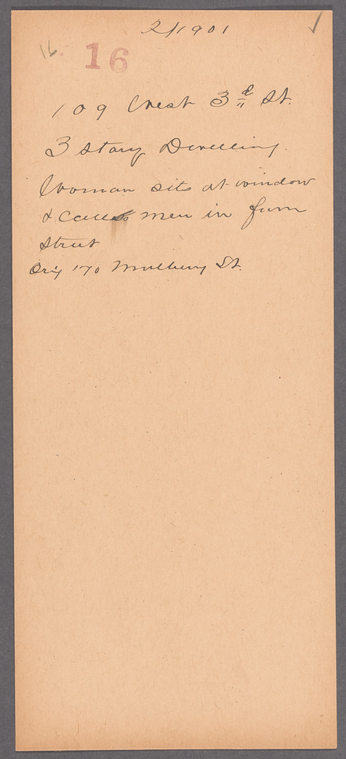 2/1901
16 16
109 West 3d St.
3 story Dwelling.
Woman sits at window
& calls men in from
street
Orig 170 Mulberry St.